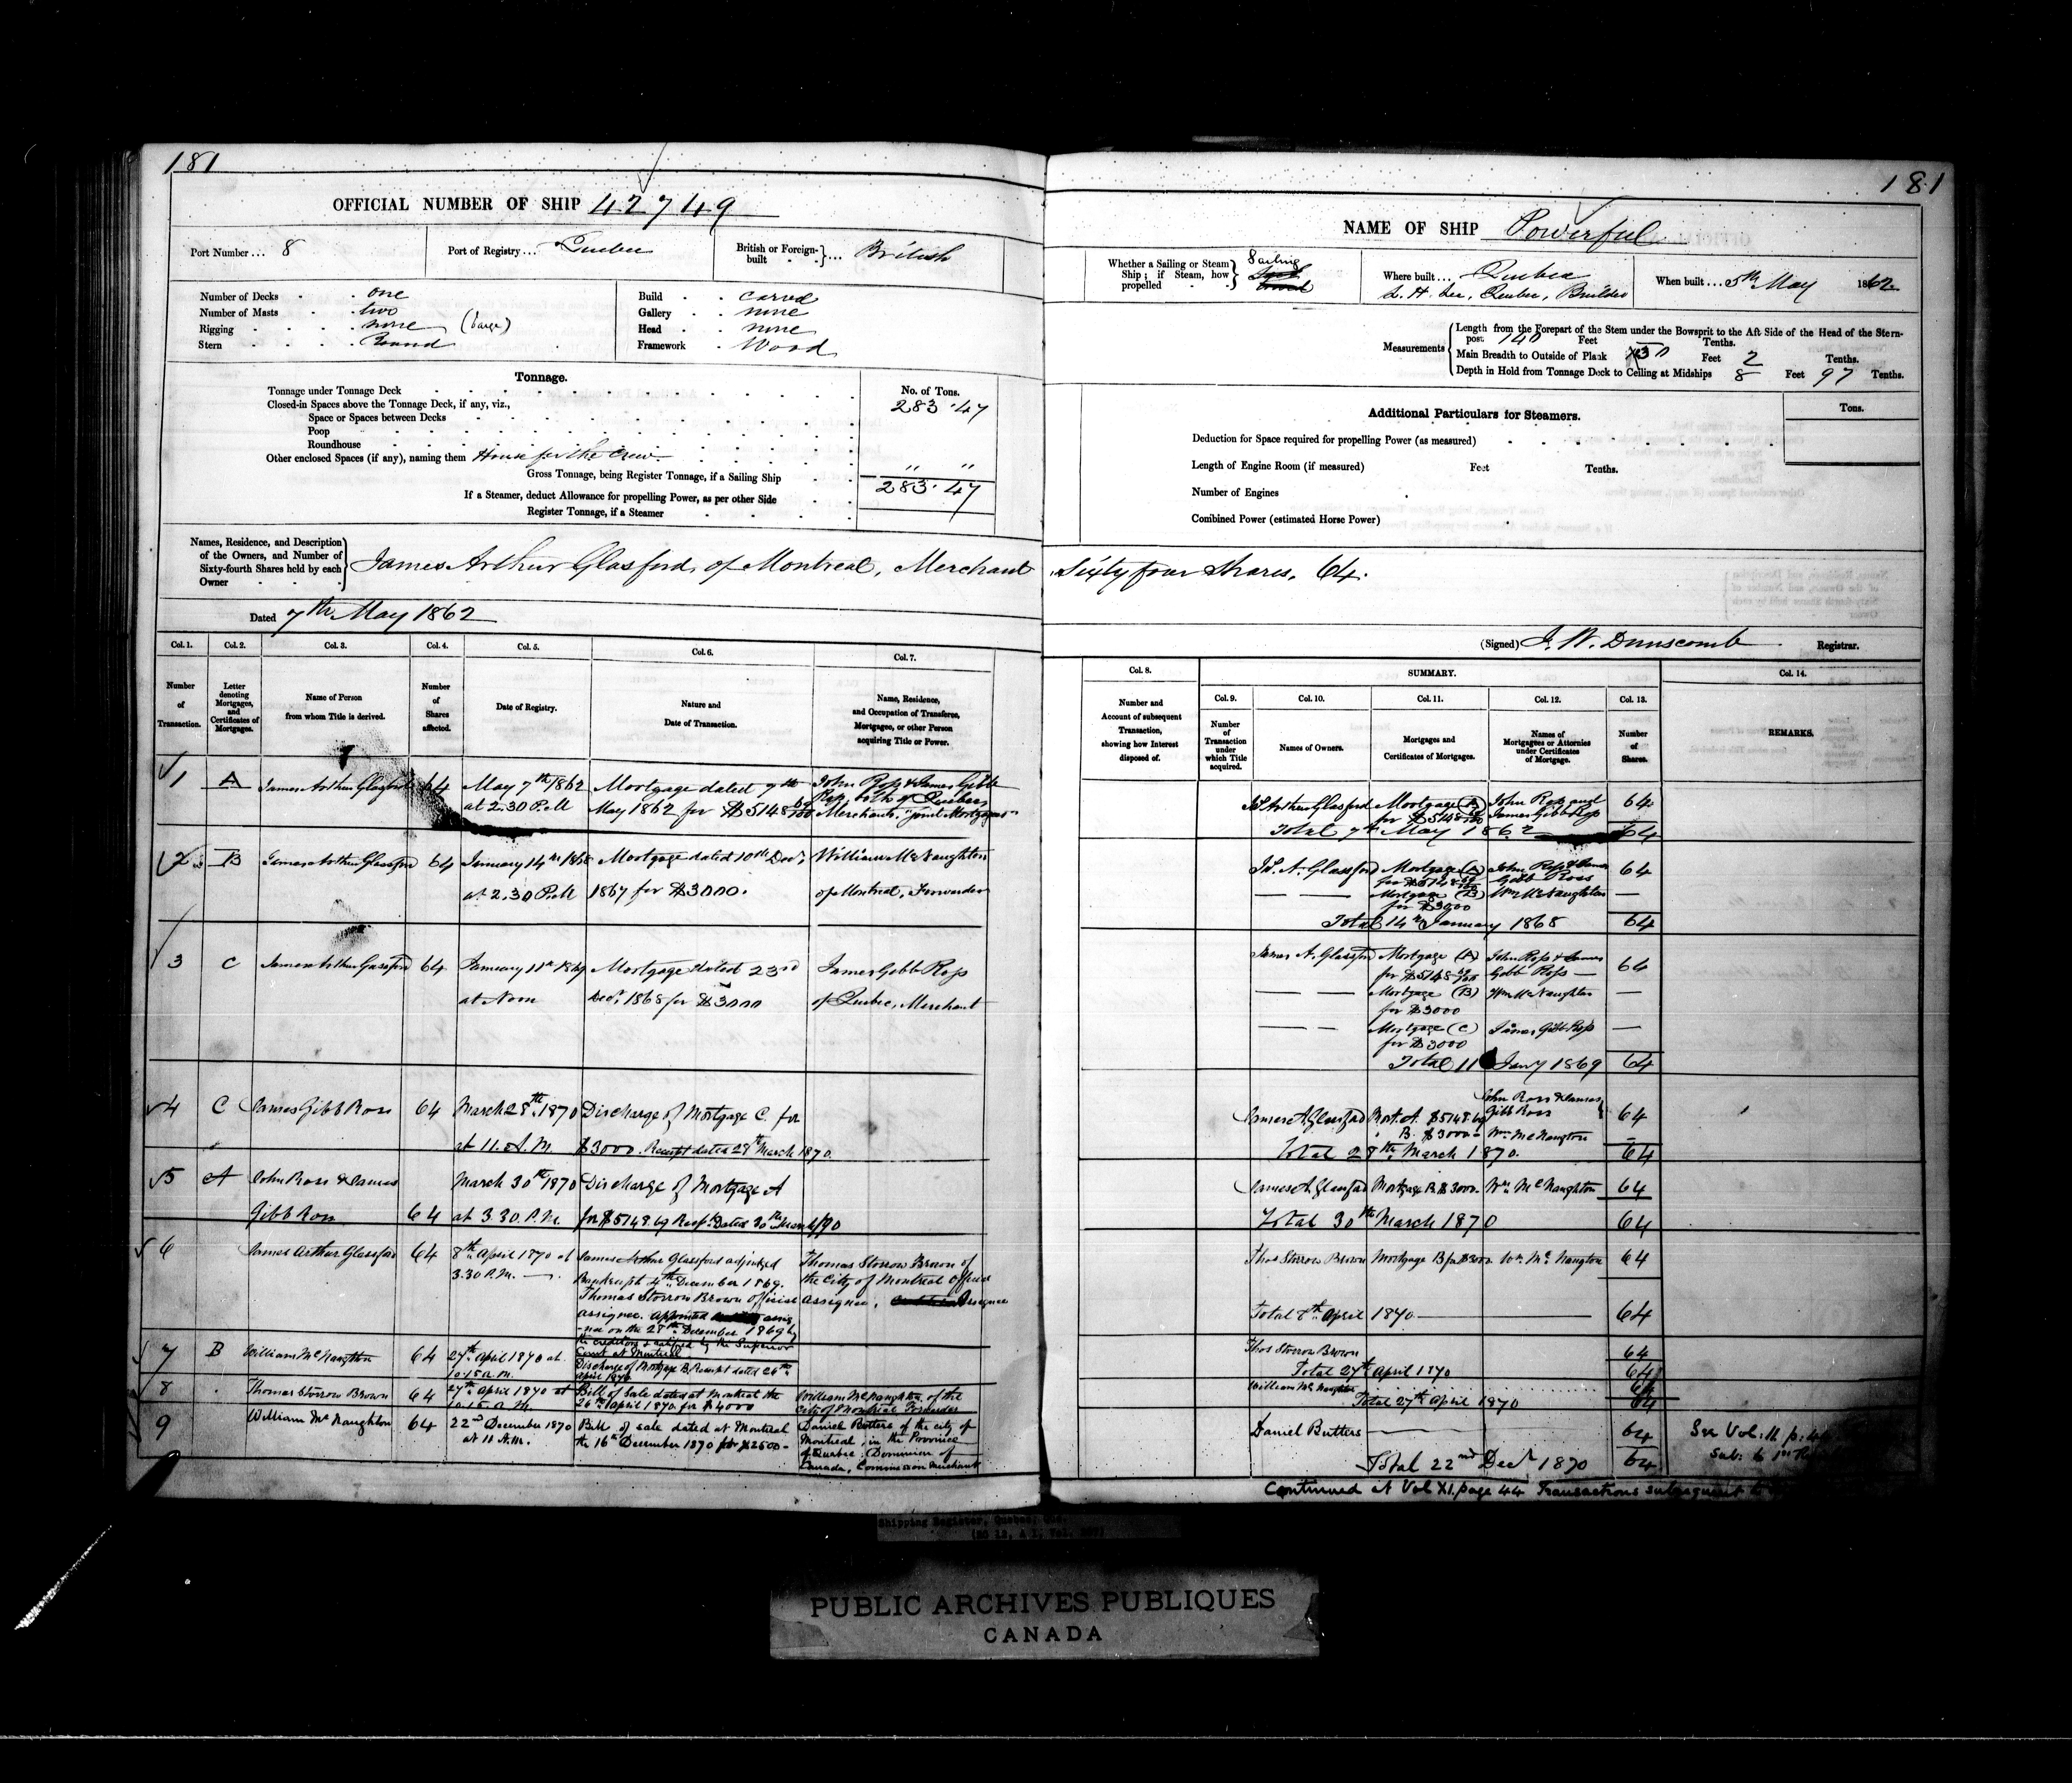 181
OFFICIAL NUMBER OF SHIP 42749
Port Number ... 8
Port of Registry ... Quebec
British or Foreign-built } ... British
Number of Decks . . one
Number of Masts . . two
Rigging . . . . none (barge)
Stern . . . . Round
Build . . carvel
Gallery . . none
Head . . none
Framework . Wood
Tonnage.
No. of Tons.
Tonnage under Tonnage Deck 283.47
Closed-in Spaces above the Tonnage Deck, if any, viz.,
Space or Spaces between Decks
Poop
Roundhouse
Other enclosed Spaces (if any), naming them House for the Crew " "
Gross Tonnage, being Register Tonnage, if a Sailing Ship 283.47
If a Steamer, deduct Allowance for propelling Power, as per other Side
Register Tonnage, if a Steamer
Names, Residence, and Description
of the Owners, and Number of
Sixty-fourth Shares held by each
Owner
James Arthur Glasford, of Montreal, Merchant
Dated 7th May 1862
Col. 1. Col. 2. Col. 3. Col. 4. Col. 5. Col. 6. Col. 7.
Number of Transaction.
Letter denoting Mortgages, and Certificates of Mortgages.
Name of Person from whom Title is derived.
Number of Shares affected.
Date of Registry.
Nature and Date of Transaction.
Name, Residence, and Occupation of Transferee, Mortgagee, or other Person acquiring Title or Power.
1 A James Arthur Glasford 64 May 7th 1862 Mortgage dated 7th John Ross & James Gibb
at 2.30 P.M May 1862 for $5148 69/100 Ross both of Quebec
Merchants, joint Mortgagees
2 B James Arthur Glassford 64 January 14th 1868 Mortgage dated 10th Decr William McNaughton
at 2.30 P.M 1867 for $3000. of Montreal, Forwarder
3 C James Arthur Gassford 64 January 11th 1869 Mortgage dated 23rd James Gibb Ross
at Noon Decr 1868 for $3000 of Quebec, Merchant
4 C James Gibb Ross 64 March 28th 1870 Discharge of Mortgage C. for
at 11. A.M. $3000. Receipt dated 28th March 1870.
5 A John Ross & James March 30th 1870 Discharge of Mortgage A
Gibb Ross 64 at 3.30. P.M. for $5148.69 Recpt. Dated 30th Mar 1870
6 James Arthur Glassford 64 8th April 1870 at James Arthur Glassford adjudged Thomas Storrow Brown of
3.30 P.M. Bankrupt 4th December 1869. the City of Montreal Official
Thomas Storrow Brown official assignee.
assignee. appointed assig
-nee on the 28th December 1869 by
the creditors & ratified by the Superior
Court at Montreal
7 B William McNaughton 64 27th April 1870 at Discharge of Mortgage B, Receipt dated 26th
10.15 a.m. April 1870
8 Thomas Storrow Brown 64 27th April 1870 at Bill of Sale dated at Montreal the William McNaughton of the
10.15 a.m. 26th April 1870 for $4000 City of Montreal Forwarder
9 William McNaughton 64 22nd December 1870 Bill of sale dated at Montreal Daniel Butters of the city of
at 11 A.M. the 16th December 1870 for $2500- Montreal, in the Province
of Quebec, Dominion of
Canada, Commission merchant
181
NAME OF SHIP Powerful
Whether a Sailing or Steam Ship; if Steam, how propelled } Sailing
Where built ... Quebec
Quebec, Builder
When built ... 5th May 1862
Measurements
Length from the Forepart of the Stem under the Bowsprit to the Aft Side of the Head of the Stern-
post 140 Feet Tenths.
Main Breadth to Outside of Plank 30 Feet 2 Tenths.
Depth in Hold from Tonnage Deck to Ceiling at Midships 8 Feet 97 Tenths.
Additional Particulars for Steamers.
Tons.
Deduction for Space required for propelling Power (as measured)
Length of Engine Room (if measured) Feet Tenths.
Number of Engines
Combined Power (estimated Horse Power)
Sixty four Shares, 64.
(Signed) J. W. Dunscomb Registrar.
Col. 8. SUMMARY. Col. 14.
Col. 9. Col. 10. Col. 11. Col. 12. Col. 13.
Number and Account of subsequent Transaction, showing how Interest disposed of.
Number of Transaction under which Title acquired.
Names of Owners.
Mortgages and Certificates of Mortgages.
Names of Mortgagees or Attornies under Certificates of Mortgage.
Number of Shares.
REMARKS.
Arthur Glasford Mortgage (A) John Ross and 64
for $5148 69/100 James Gibb Ross
Total 7th May 1862 64
Js. A. Glassford Mortgage (A) John Ross & James 64
for $5148 69/100 Gibb Ross
Mortgage (B) Wm McNaughton
for $3000
Total 14th January 1868 64
James A. Glassford Mortgage (A) John Ross & James 64
for $5148 69/100 Gibb Ross
Mortgage (B) Wm McNaughton
for $3000
Mortgage (C) James Gibb Ross
for $3000
Total 11 Jany 1869 64
James A. Glassford Mort. A. $5148.69 John Ross & James Gibb Ross 64
" B. $3000- Wm. McNaugton
Total 28th March 1870. 64
James A. Glassford Mortgage B $3000. Wm McNaughton 64
Total 30th March 1870 64
Thos Storrow Brown Mortgage B for $3000. Wm. McNaugton 64
Total 8th April 1870 64
Thos Storrow Brown 64
Total 27th April 1870 64
William McNaughton 64
Total 27th April 1870 64
Daniel Butters 64
Total 22nd Decr 1870 64
See Vol: 11. p: 44
Continued at Vol XI. page 44 Transactions subsequent to
Shipping Register, Quebec, Que.
PUBLIC ARCHIVES PUBLIQUES
CANADA